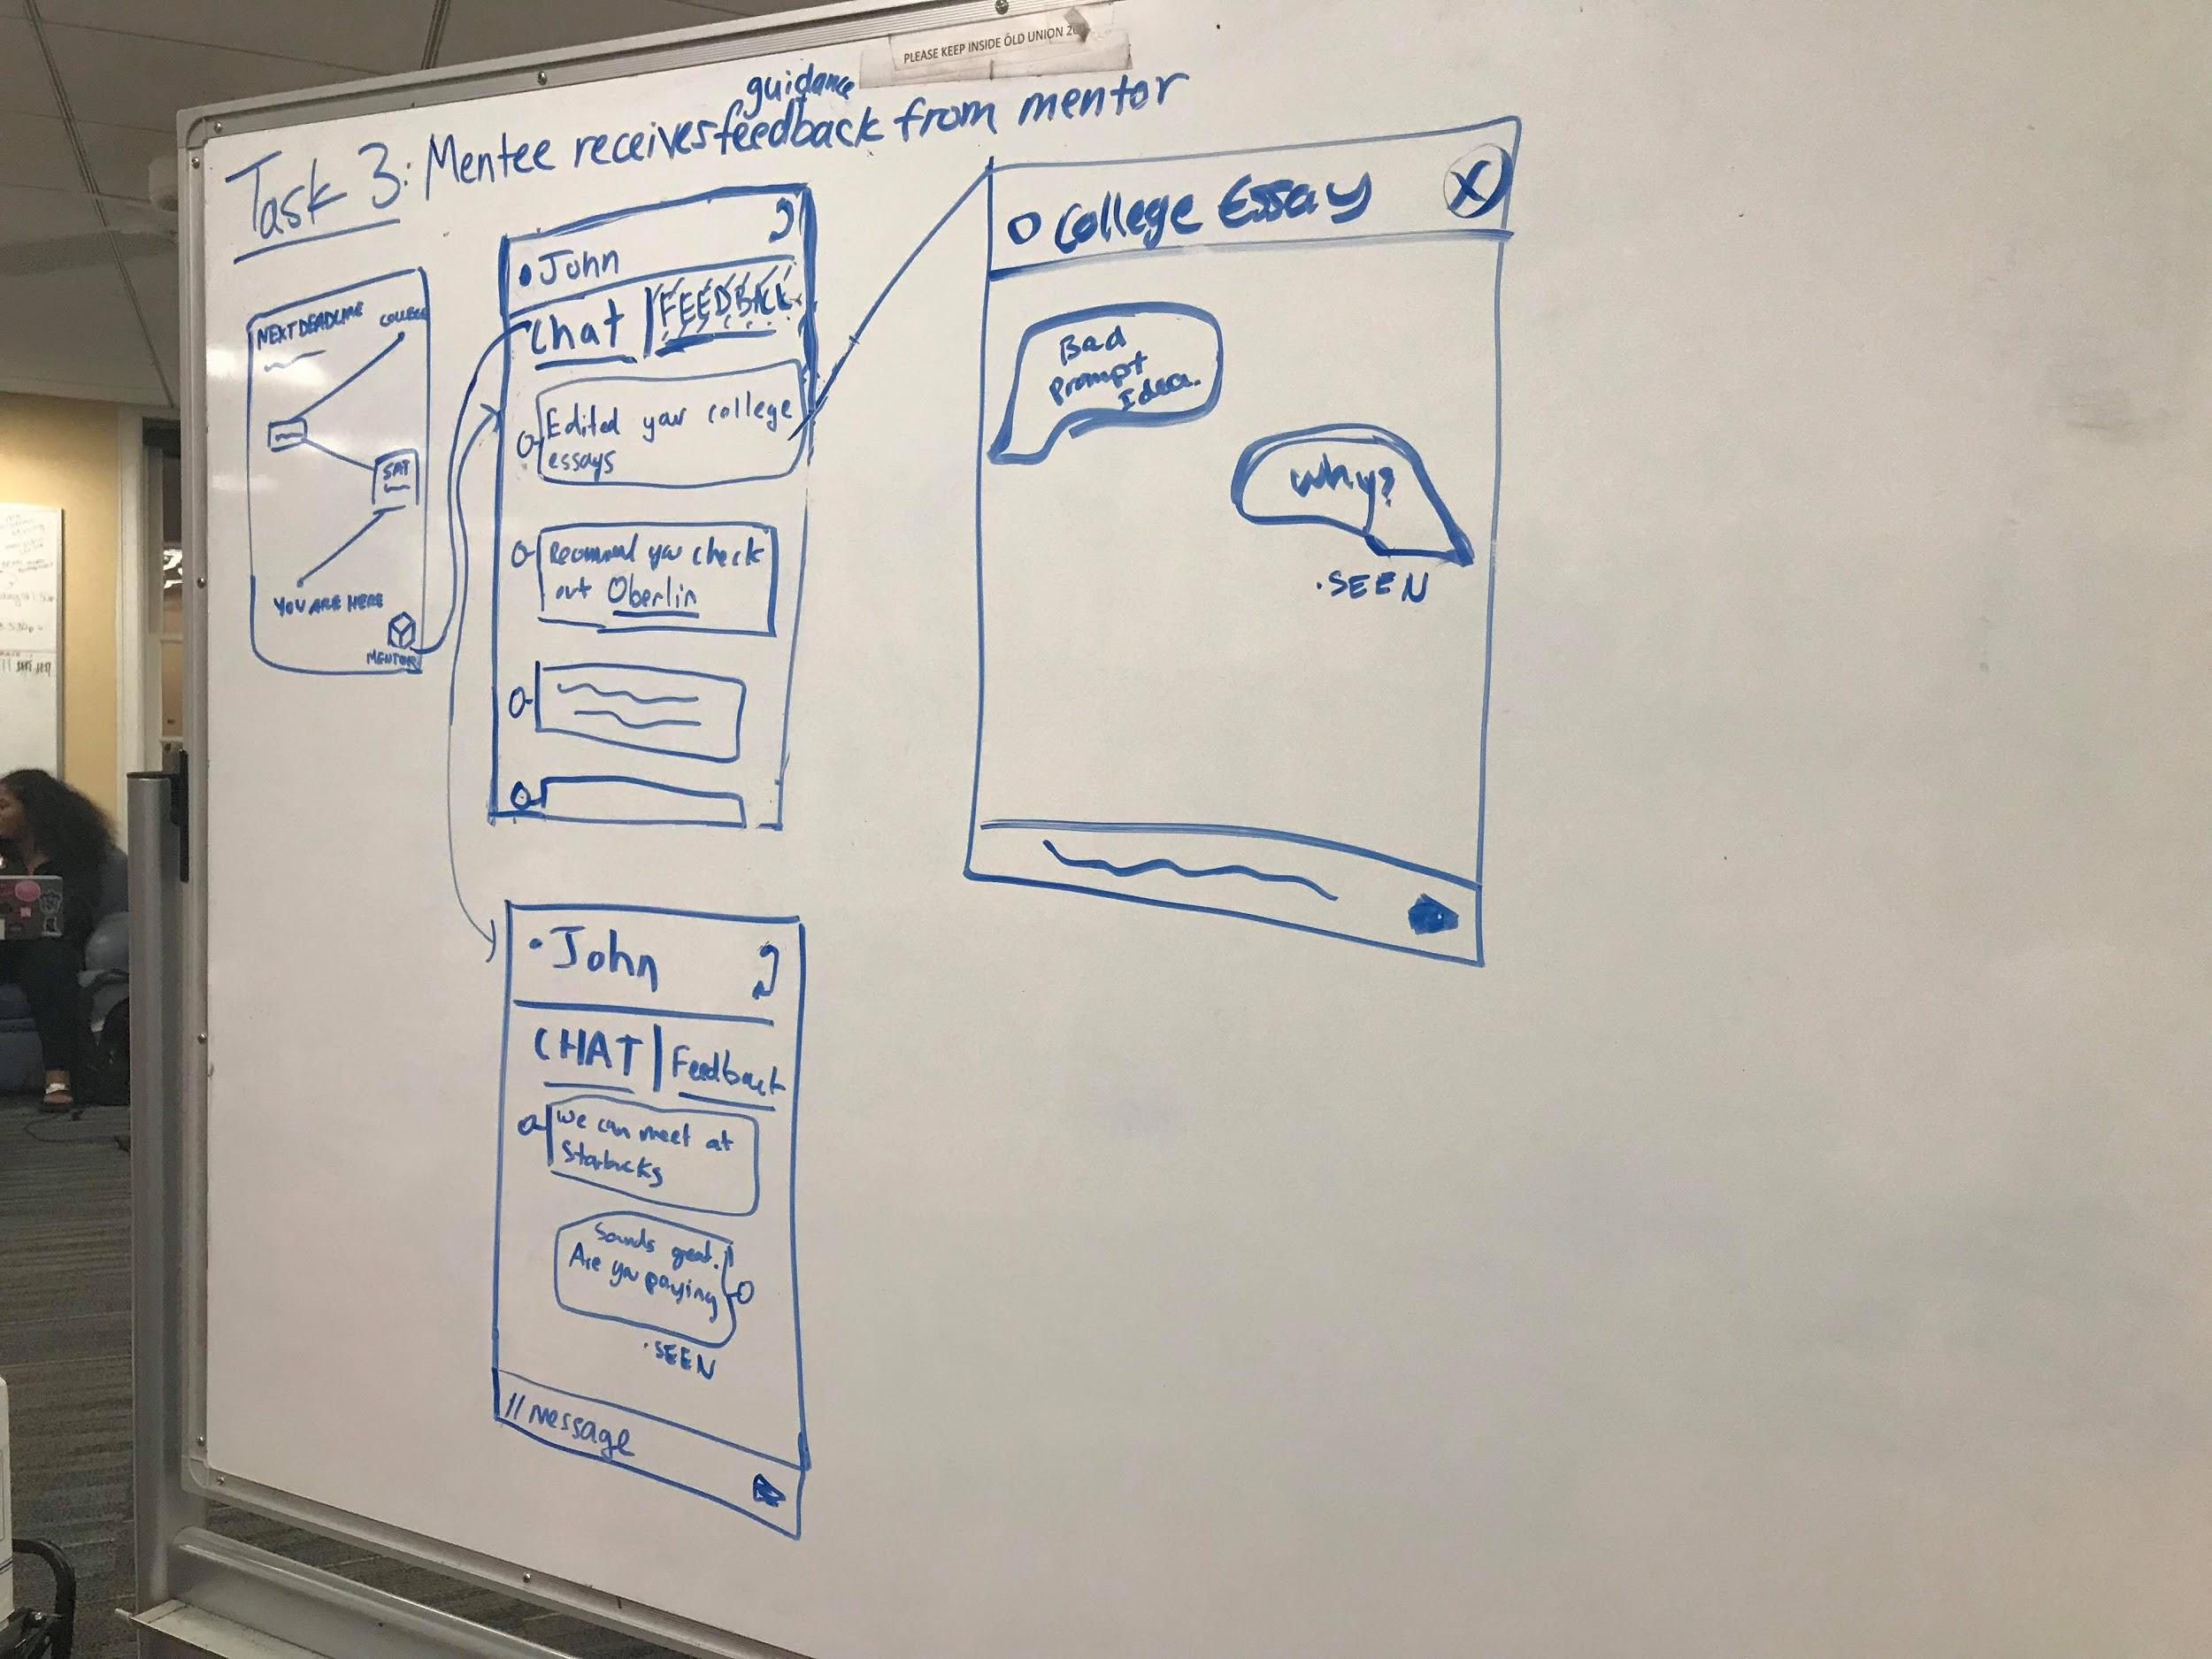 PLEASE KEEP INSIDE OLD UNION
guidance
Task 3: Mentee receives feedback from mentor
NEXT DEADLINE
COLLEGE
SAT
YOU ARE HERE
MENTOR
John
Chat | FEEDBACK
Edited your college
essays
Recommend you check
out Oberlin
College Essay X
Bad
Prompt
Idea.
Why?
SEEN
John
CHAT | Feedback
We can meet at
Starbucks
Sounds great.
Are you paying
SEEN
// message